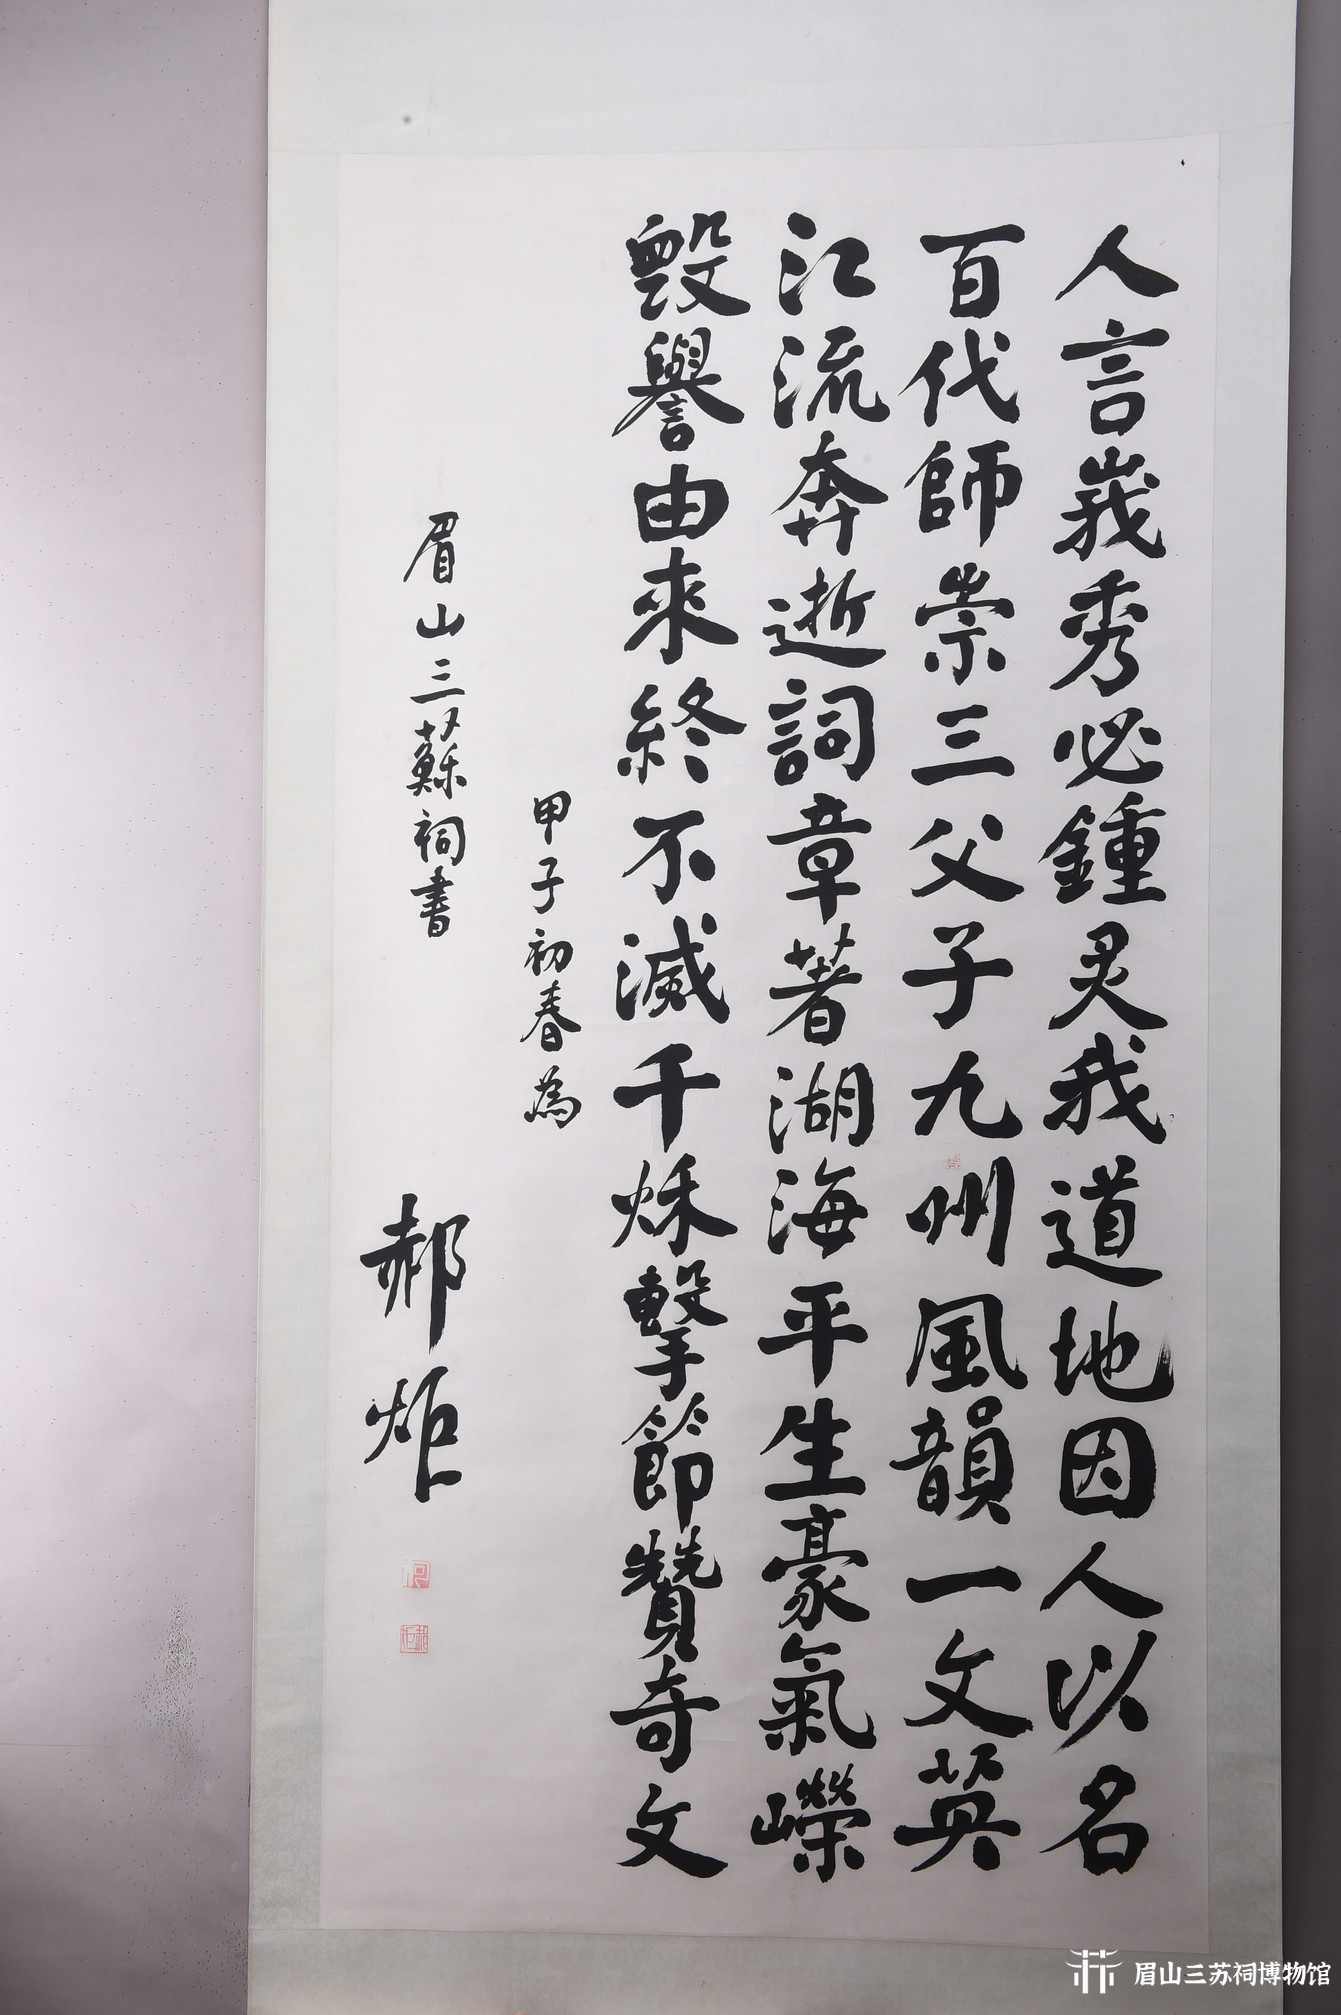 人言峩秀必鍾灵我道地因人以名
百代師崇三父子九州風韻一文英
江流奔逝詞章著湖海平生豪氣嶸
毀譽由來終不滅千秌擊節贊奇文
甲子初春為
眉山三蘇祠書
郝炬
郝炬
眉山三苏祠博物馆